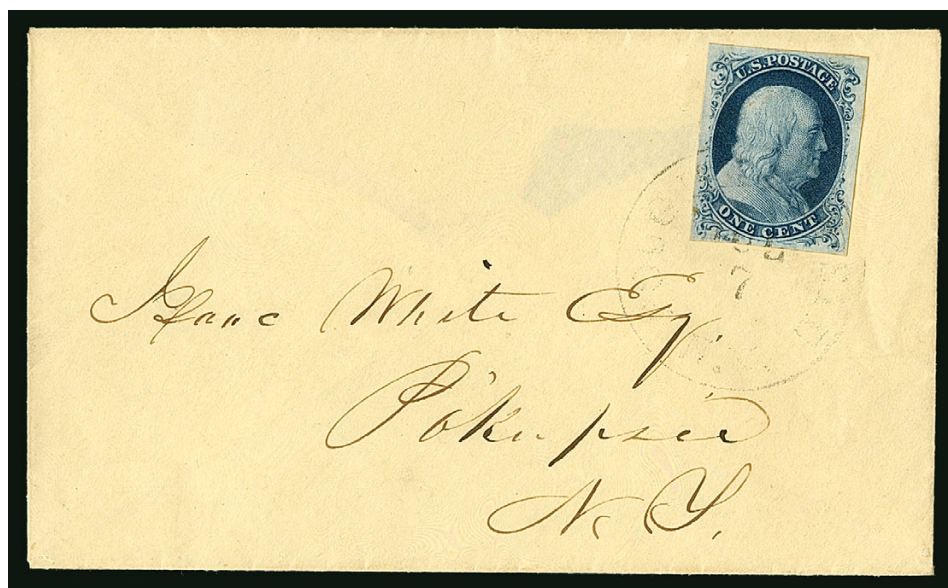 U.S. POSTAGE
ONE CENT
7
Isaac White Esq.
Po'kupsie
N. Y.